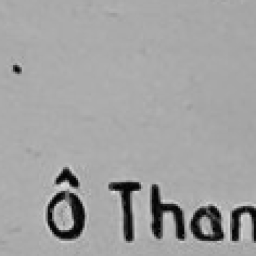 Ô Than